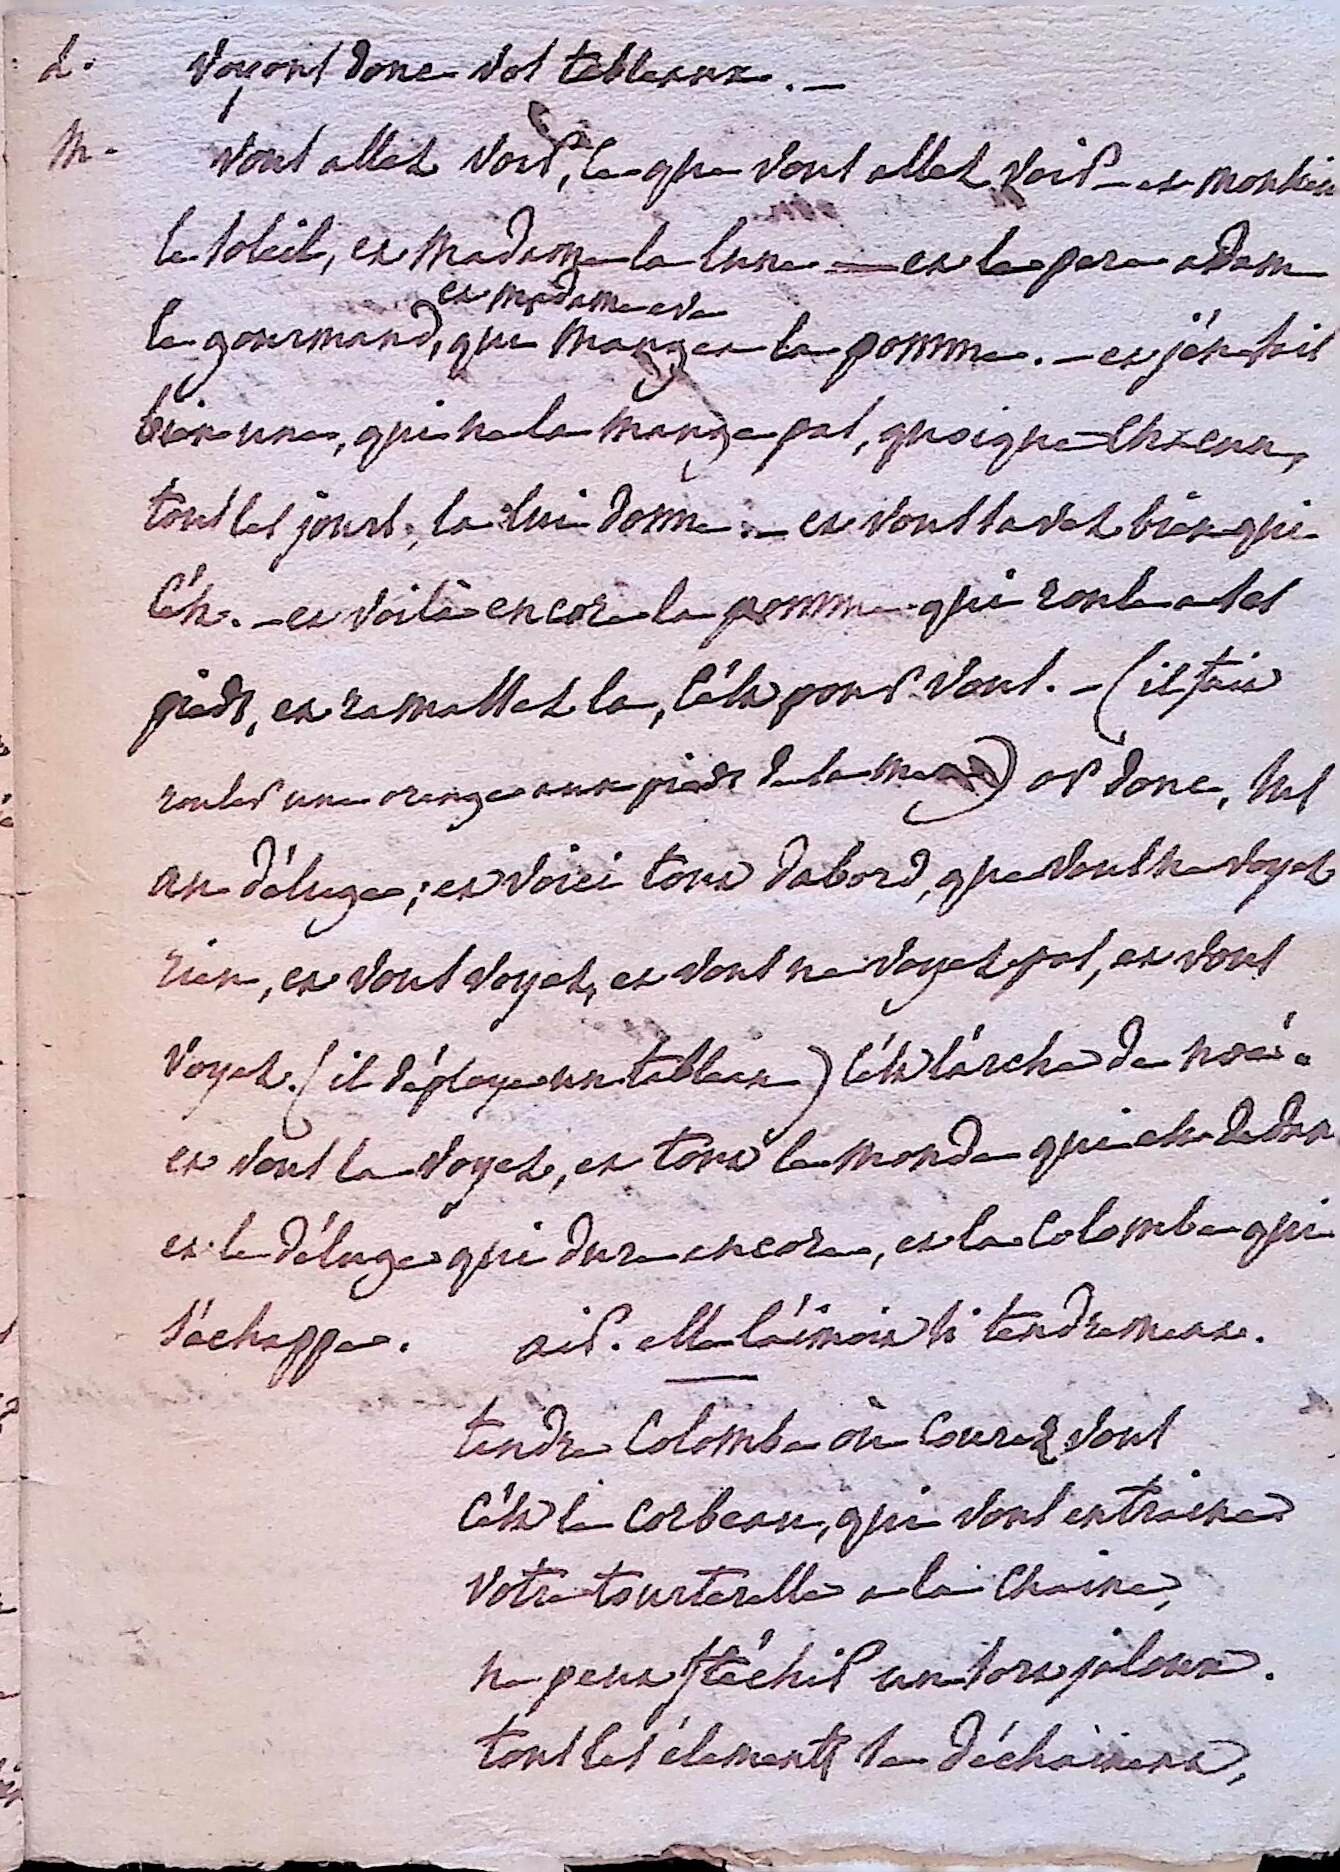 d. voyons donc vos tableaux. —
m. vous allez voir, ce que vous allez voir — et monsieu
le soleil, et madame la lune — et le pere adam
et madame eve
le gourmand, qui mangea la pomme. — et j'en sais
bien une, qui ne la mange pas, quoique chacun,
tous les jours, la lui donne. — et vous savez bien qui
c'ést. — et voilà encore la pomme qui roule a ses
pieds, et ramassez la, c'ést pour vous. — (il fait
rouler une orange aux pieds de la) or donc,
un déluge; et voici tout dabord, que vous ne voyez
rien, et vous voyez, et vous ne voyez pas, et vous
voyez. (il déploye un tableau) c'ést l'arche de noé.
et vous la voyez, et tout le monde qui est dedans
et le déluge qui dure encore, et la colombe qui
s'échappe. air. elle l'aimoit si tendrement.
tendre colombe où courez vous
c'ést le corbeau, qui vous entraine
votre tourterelle a la chaine,
ne peut fléchir un sort jaloux.
tous les élements se déchainent,